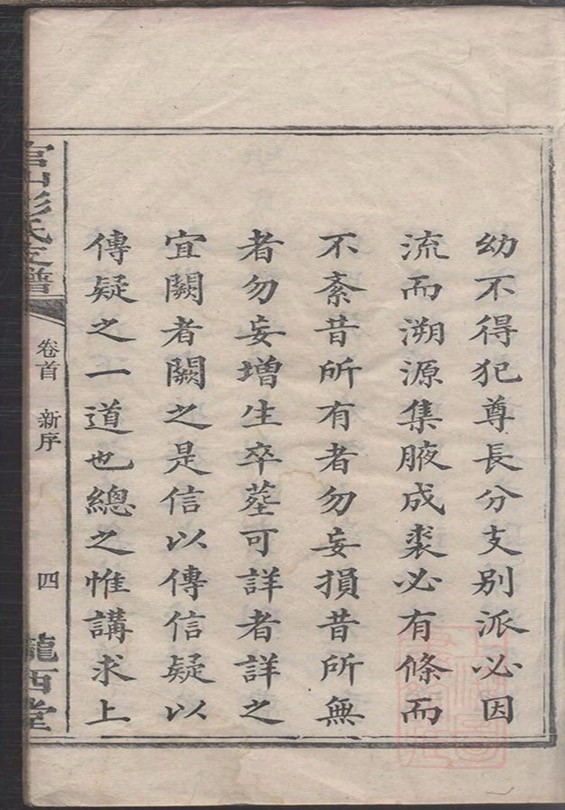 幼不得犯尊長分支别派必因
流而溯源集腋成裘必有條而
不紊昔所有者勿妄損昔所無
者勿妄增生卒塟可詳者詳之
宜闕者闕之是信以傳信疑以
傳疑之一道也總之惟講求上
官山彭氏支譜
卷首
新序
四
隴西堂